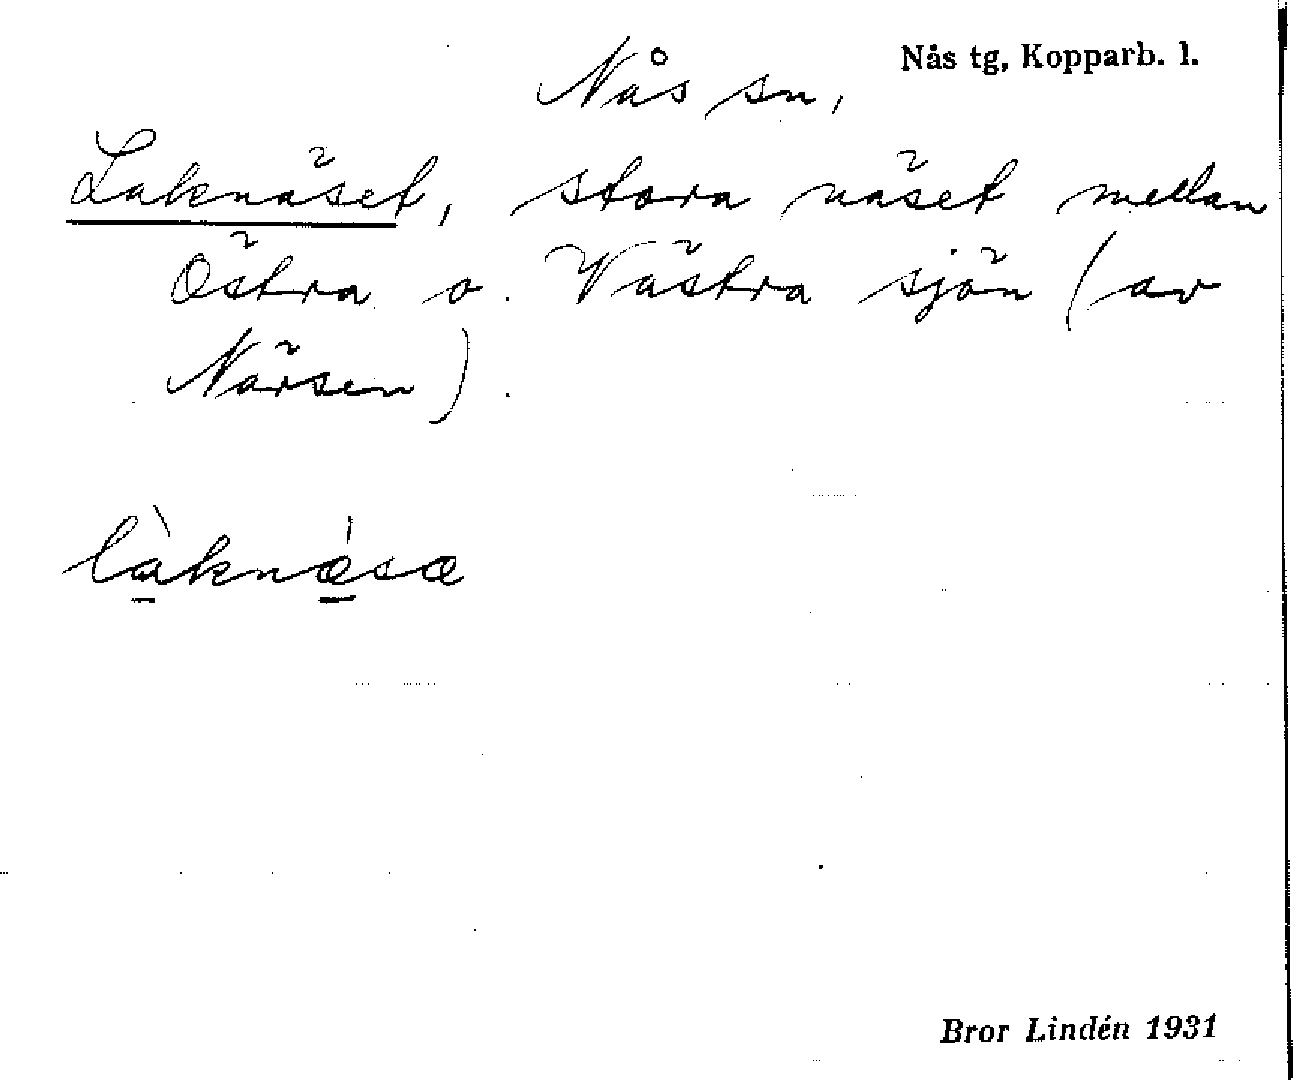 Nås tg, Kopparb. l.
Nås sn,
Laknäset, stora näset mellan
Östra o. Västra sjön (av
Närsen).
làknæ̀sæ
Bror Lindén 1931